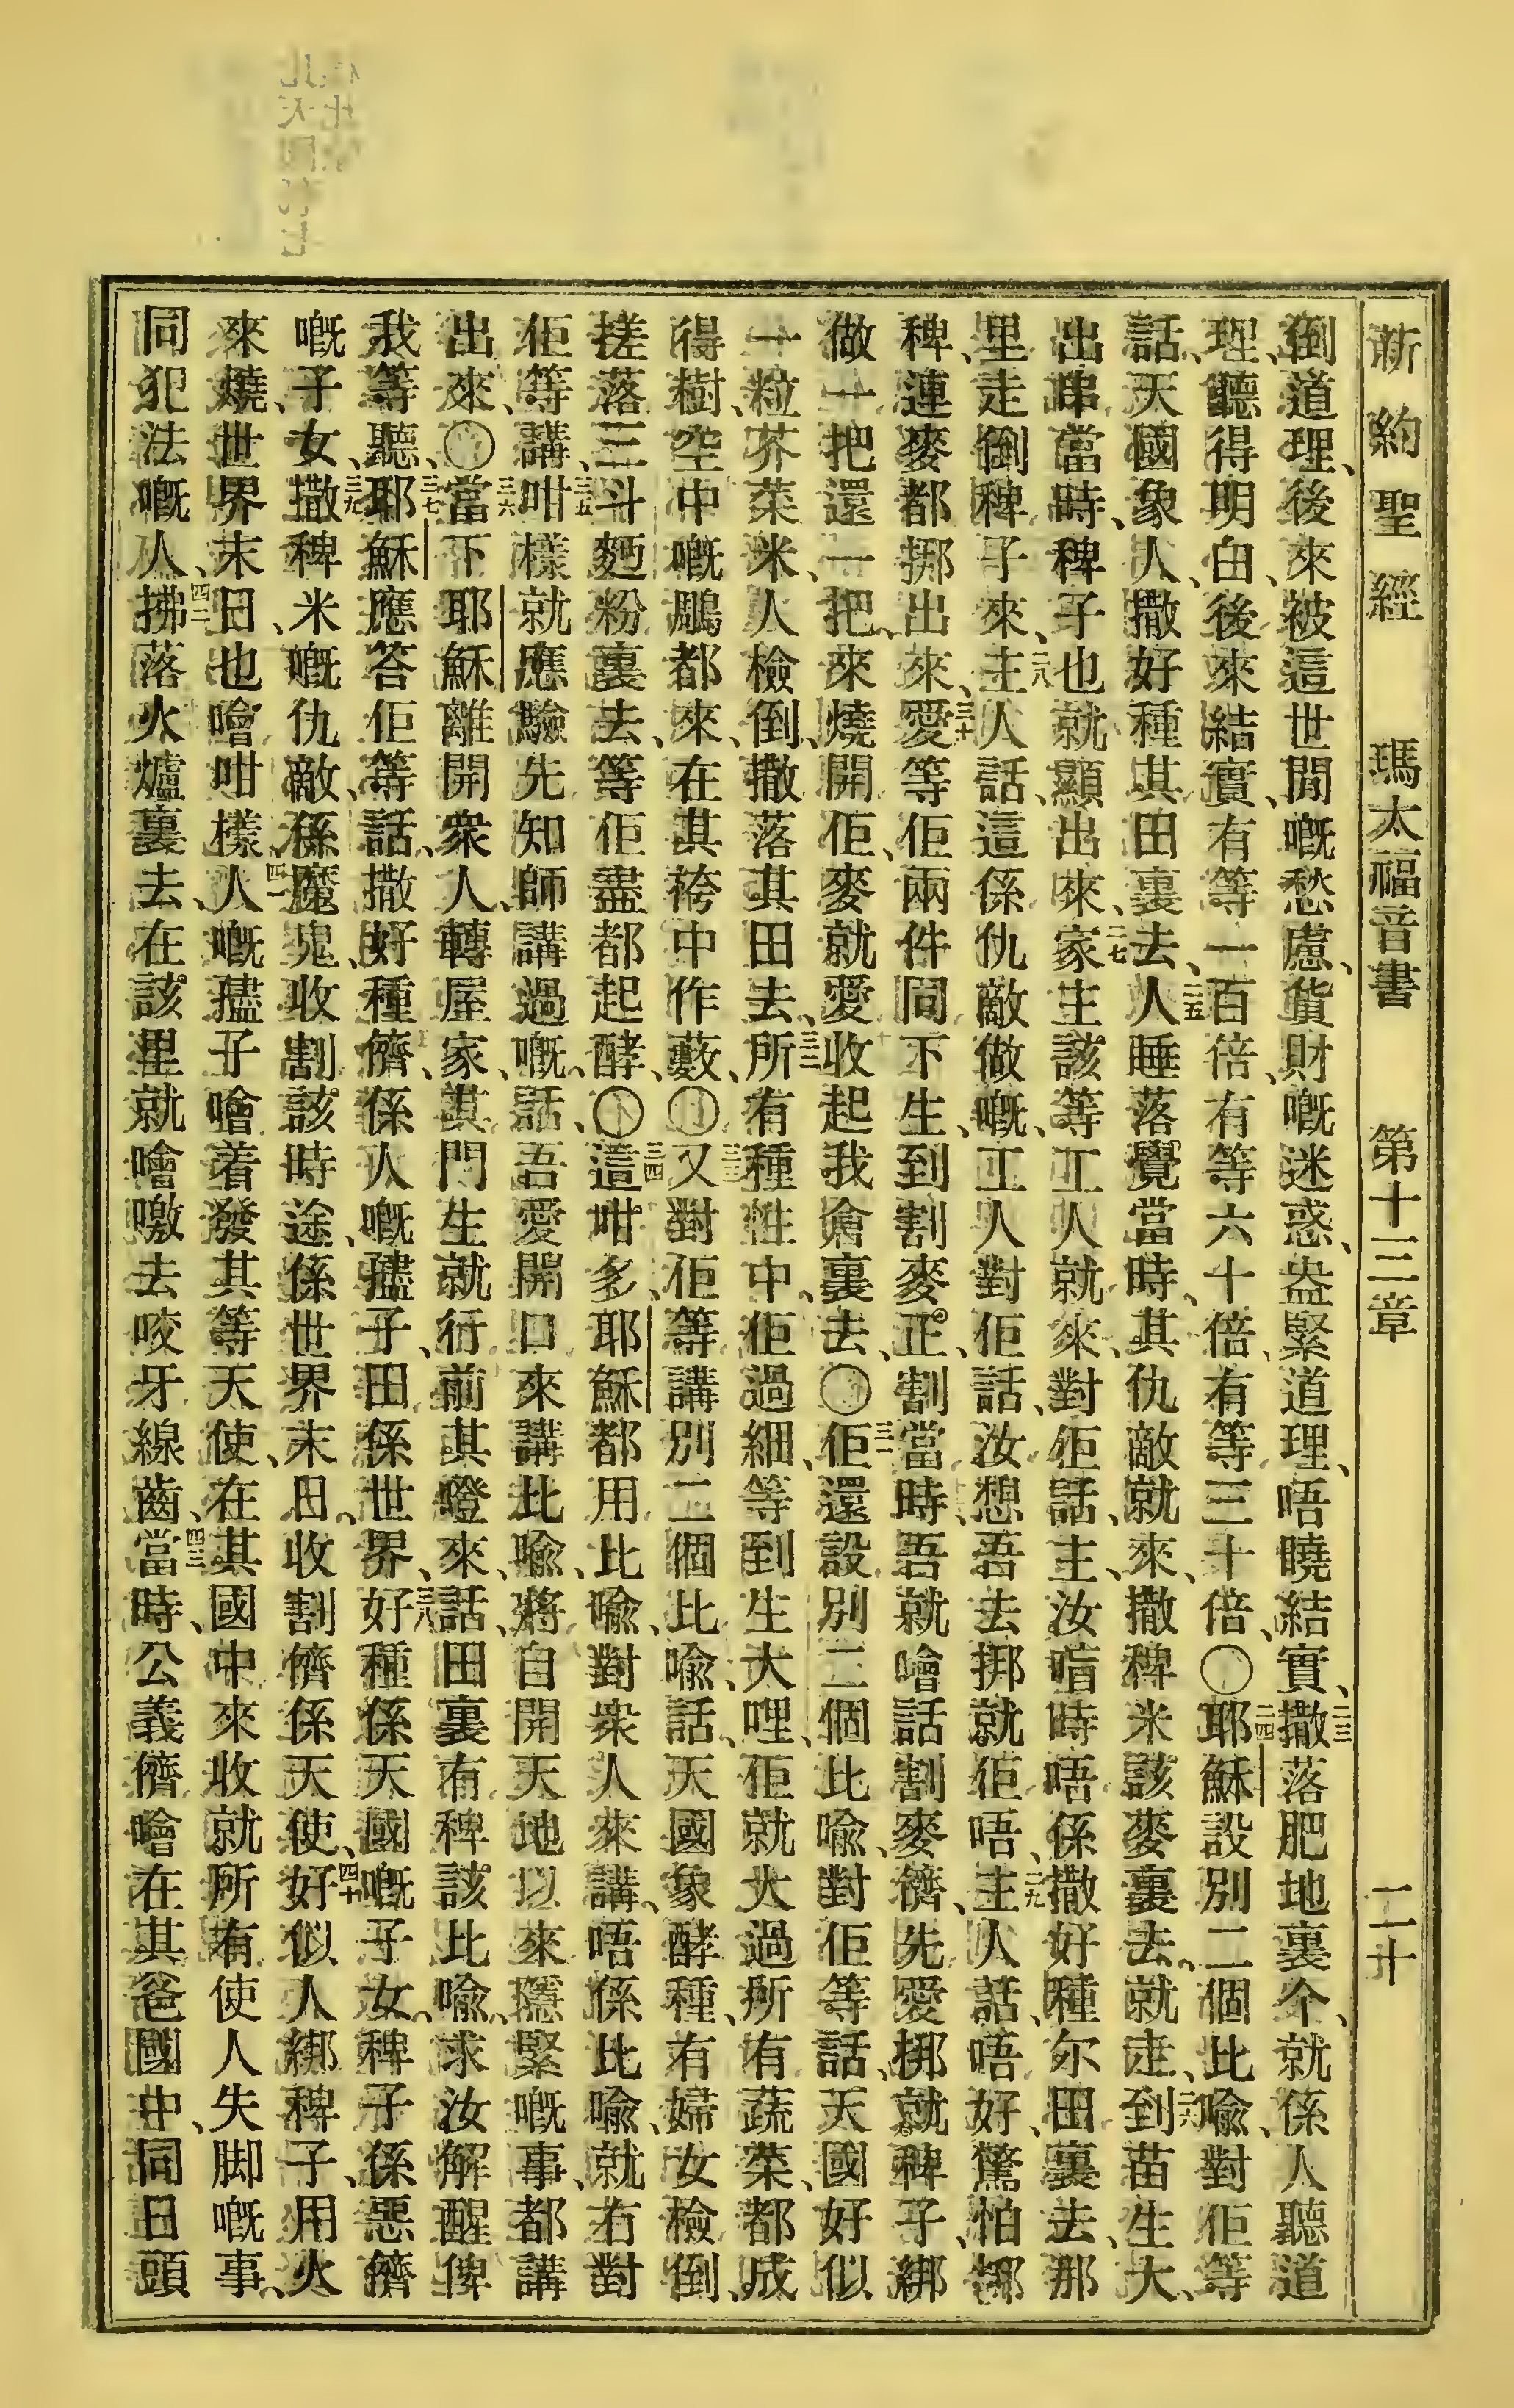 新約聖經 瑪太福音書 第十三章 二十
倒道理、後來被這世間嘅愁慮、貨財嘅迷惑、盎緊道理、唔曉結實、二三撒落肥地裏个、就係人聽道
理、聽得明白、後來結實、有等一百倍、有等六十倍、有等三十倍、〇二四耶穌設別二個比喻、對佢等
話、天國象人、撒好種其田裏去、二五人睡落覺當時、其仇敵就來、撒稗米該麥裏去、就走、二六到苗生大、
出串當時、稗子也就顯出來、二七家主該等工人就來、對佢話、主、汝㫘時唔係撒好種尔田裏去、那
里走倒稗子來、二八主人話、這係仇敵做嘅、工人對佢話、汝想吾去挪就佢唔、二九主人話、唔好、驚怕挪
稗、連麥都挪出來、三十愛等佢兩件同下生、到割麥正割當時、吾就噲話割麥儕、先愛挪就稗子、綁
做一把還一把、來燒開佢、麥就愛收起我倉裏去、〇三一佢還設別二個比喻、對佢等話、天國好似
一粒芥菜米、人檢倒、撒落其田去、三二所有種性中、佢過細、等到生大哩、佢就大過所有蔬菜、都成
得樹、空中嘅鵰都來、在其袴中作藪、〇三三又對佢等講別二個比喻、話、天國象酵種、有婦女檢倒、
搓落三斗麵粉裏去、等佢盡都起酵、〇三四這咁多、耶穌都用比喻、對衆人來講、唔係比喻、就冇對
佢等講、三五咁樣就應驗先知師講過嘅話、吾愛開口來講比喻、將自開天地以來隱緊嘅事、都講
出來、〇三六當下耶穌離開衆人、轉屋家、其門生就行前其磴來、話、田裏有稗該比喻、求汝解醒俾
我等聽、三七耶穌應答佢等話、撒好種儕、係人嘅孻子、田係世界、三八好種係天國嘅子女、稗子係惡儕
嘅子女、三九撒稗米嘅仇敵、係魔鬼、收割該時途、係世界末日、收割儕係天使、四十好似人綁稗子、用火
來燒、世界末日、也噲咁樣、四一人嘅孻子噲着發其等天使、在其國中來收就所有使人失脚嘅事、
同犯法嘅人、四二拂落火爐裏去、在該里就噲噭去咬牙線齒、四三當時、公義儕噲在其爸國中、同日頭